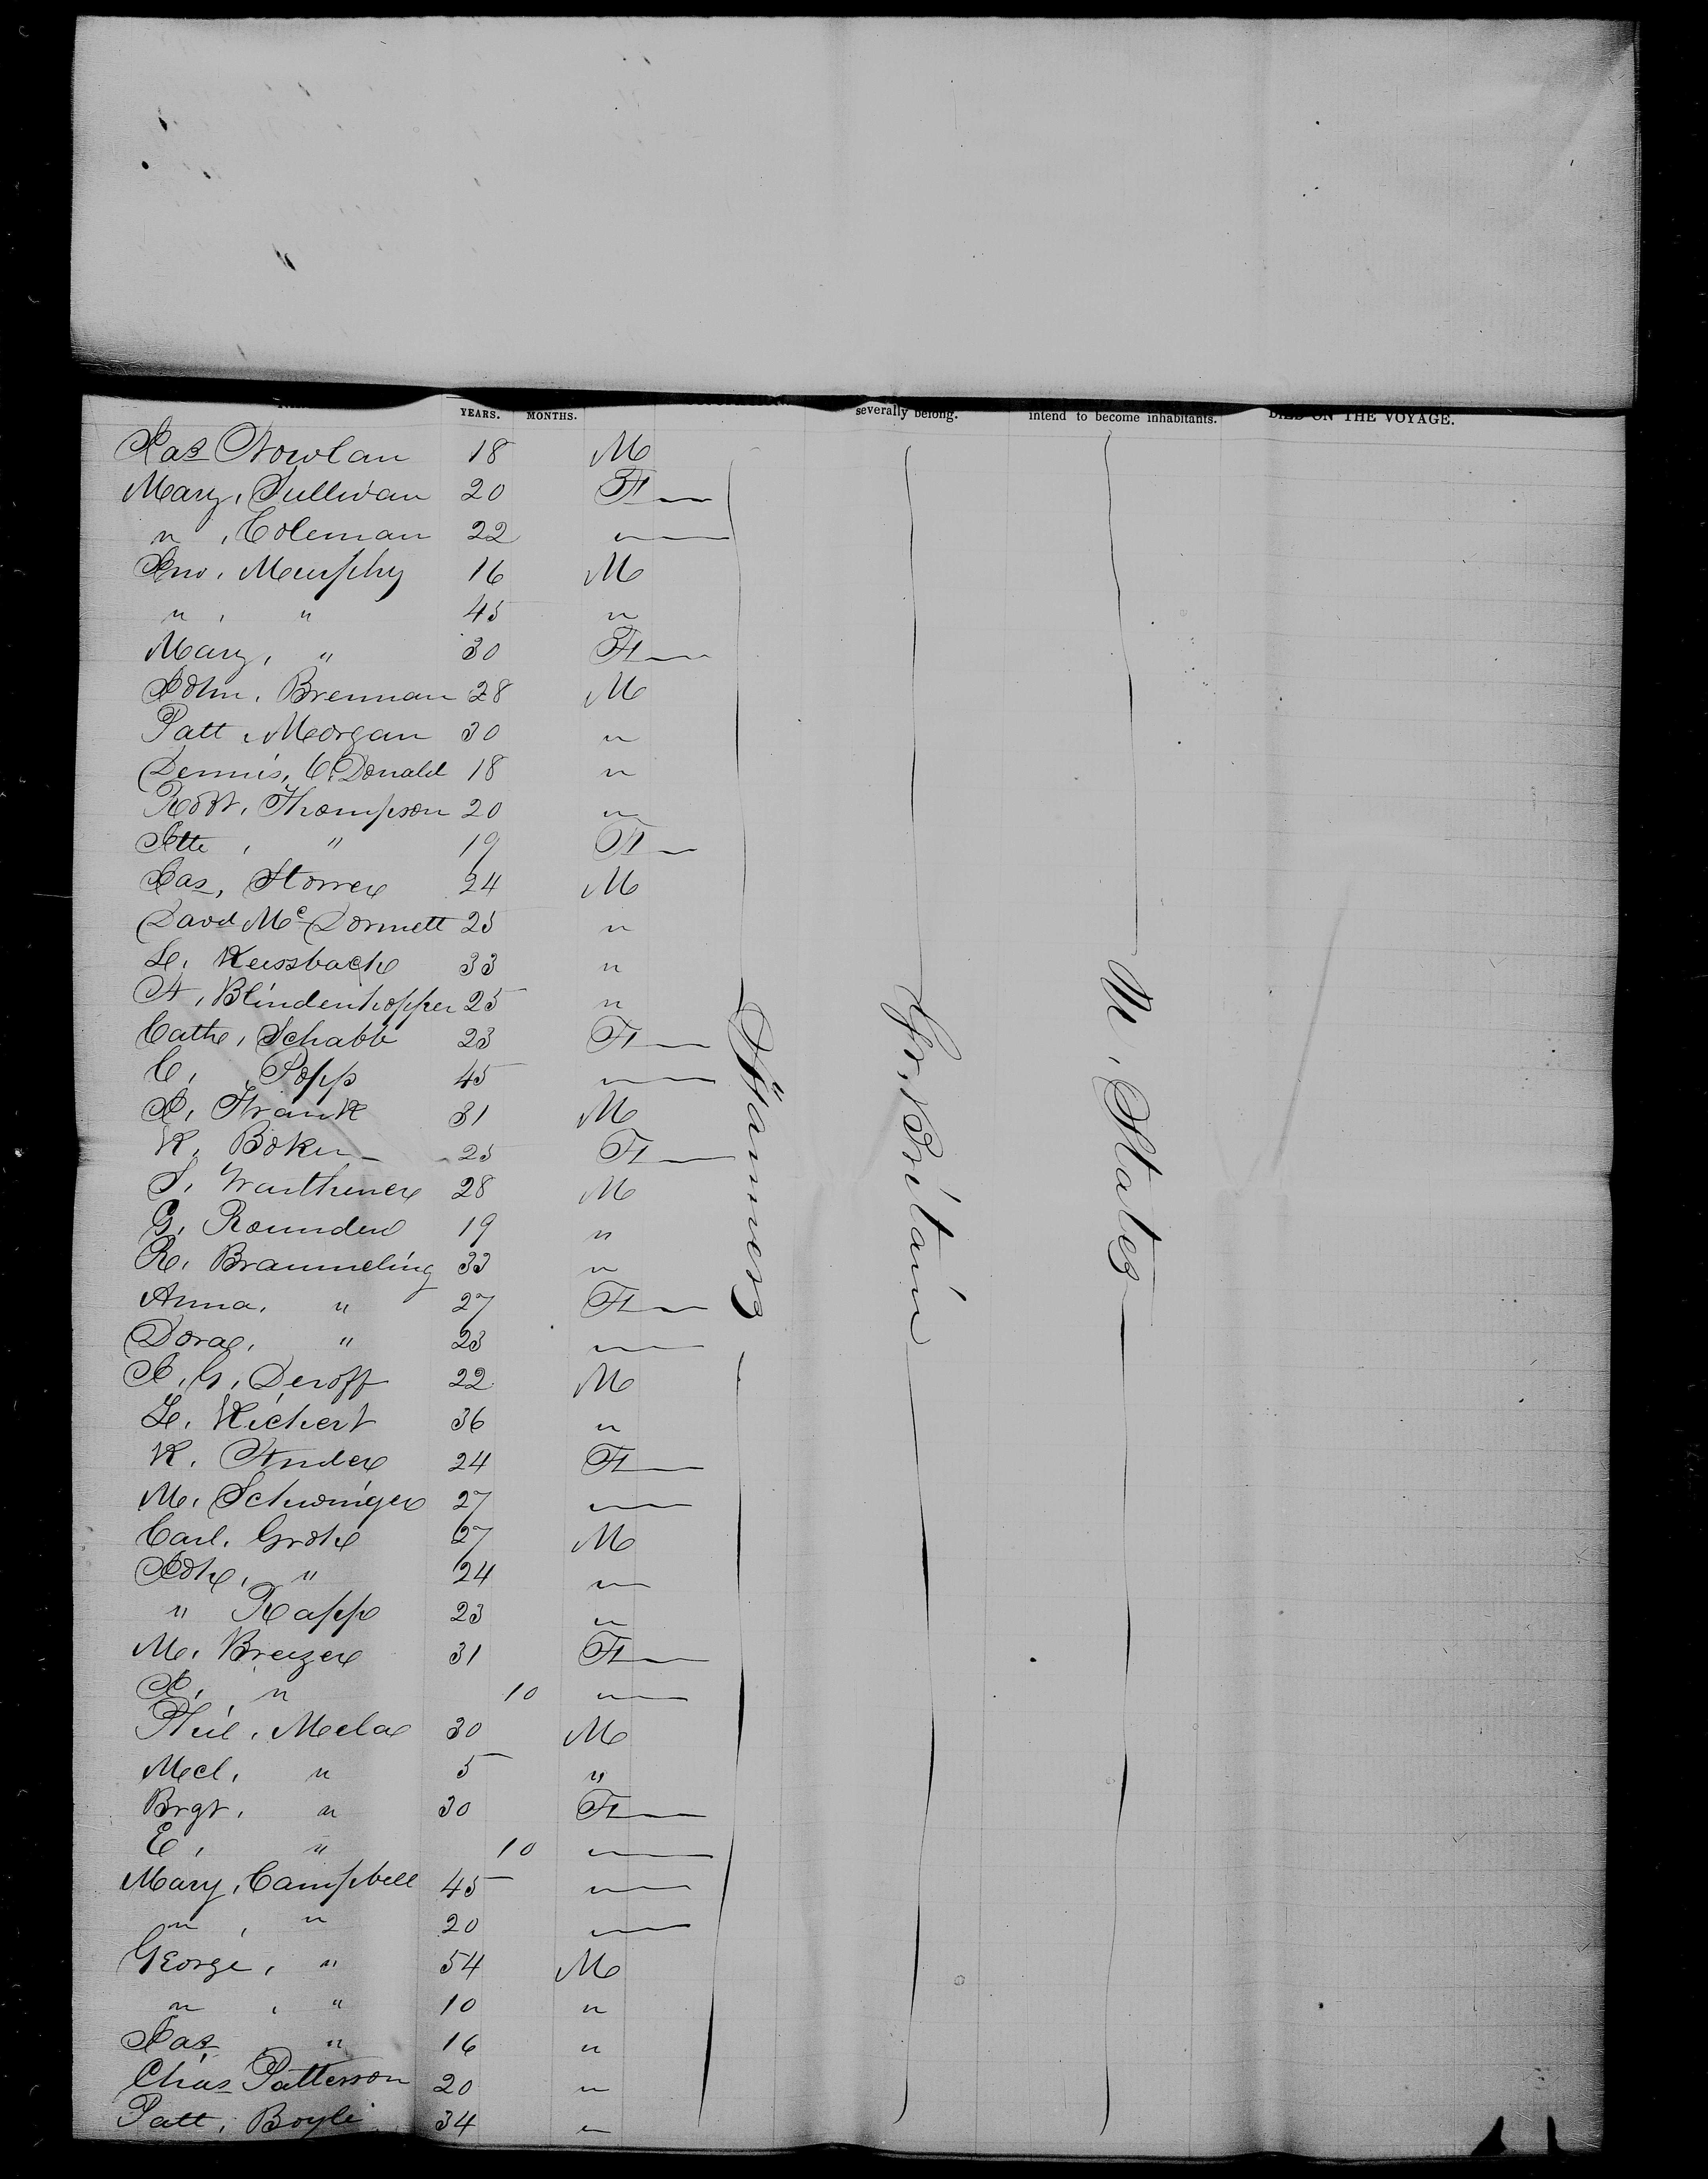 YEARS. MONTHS. severally belong. intend to become inhabitants. DIED ON THE VOYAGE.
Jas Nowlan 18 M
Mary, Sullivan 20 F
" , Coleman 22 "
Jno, Murphy 16 M
" , " 45 "
Mary, " 30 F
John, Brennan 28 M
Patt, Morgan 30 "
Dennis, O'Donald 18 "
Robt, Thompson 20 "
" 19 F
Jas, Storrer 24 M
Davd McDormett 25 "
L, Keissbach 33 "
F, Blindenhopper 25 "
Cath, Schabb 23 F
C, Popp 45 "
J, Frank 31 M
K, Boker 25 F
S, 28 M
G, Rounder 19 "
R, Brammeling 33 "
Anna, " 27 F
Dora, " 23 "
J, G, Deroff 22 M
L, Kichert 36 "
K, 24 F
M, Schwinger 27 "
Carl, Groh 27 M
Joh, " 24 "
" Rapp 23 "
M, Breizer 31 F
J, " 10 "
Phil, 30 M
Mcl, " 5 "
Brgt, " 30 F
E, " 10 "
Mary, Campbell 45 "
" , " 20 "
George, " 54 M
" , " 10 "
Jas, " 16 "
Chas Patterson 20 "
Patt, Boyle 34 "
Gr, Britain
U, States